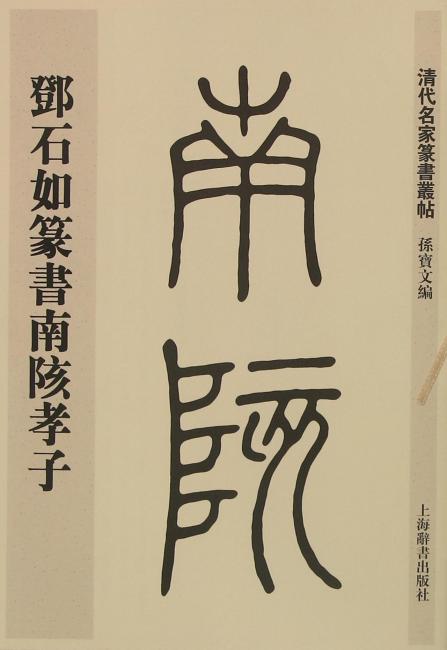 清代名家篆書叢帖
孫寶文編
上海辭書出版社
南陔
鄧石如篆書南陔孝子